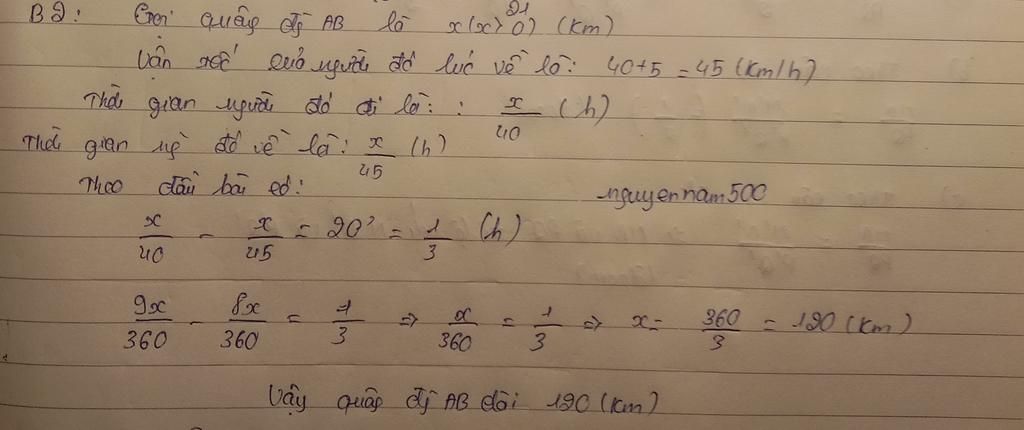 B2: Gọi quãng đg AB là x(x>0) (Km)
Vận tốc của người đó lúc về là: 40+5 = 45 (Km/h)
Thời gian người đó đi là: : x/40 (h)
Thời gian ng đó về là: x/45 (h)
Theo đầu bài có:
nguyennam500
x/40 - x/45 = 20' = 1/3 (h)
9x/360 - 8x/360 = 1/3 => x/360 = 1/3 => x = 360/3 = 120 (Km)
Vậy quãng đg AB dài 120 (Km)